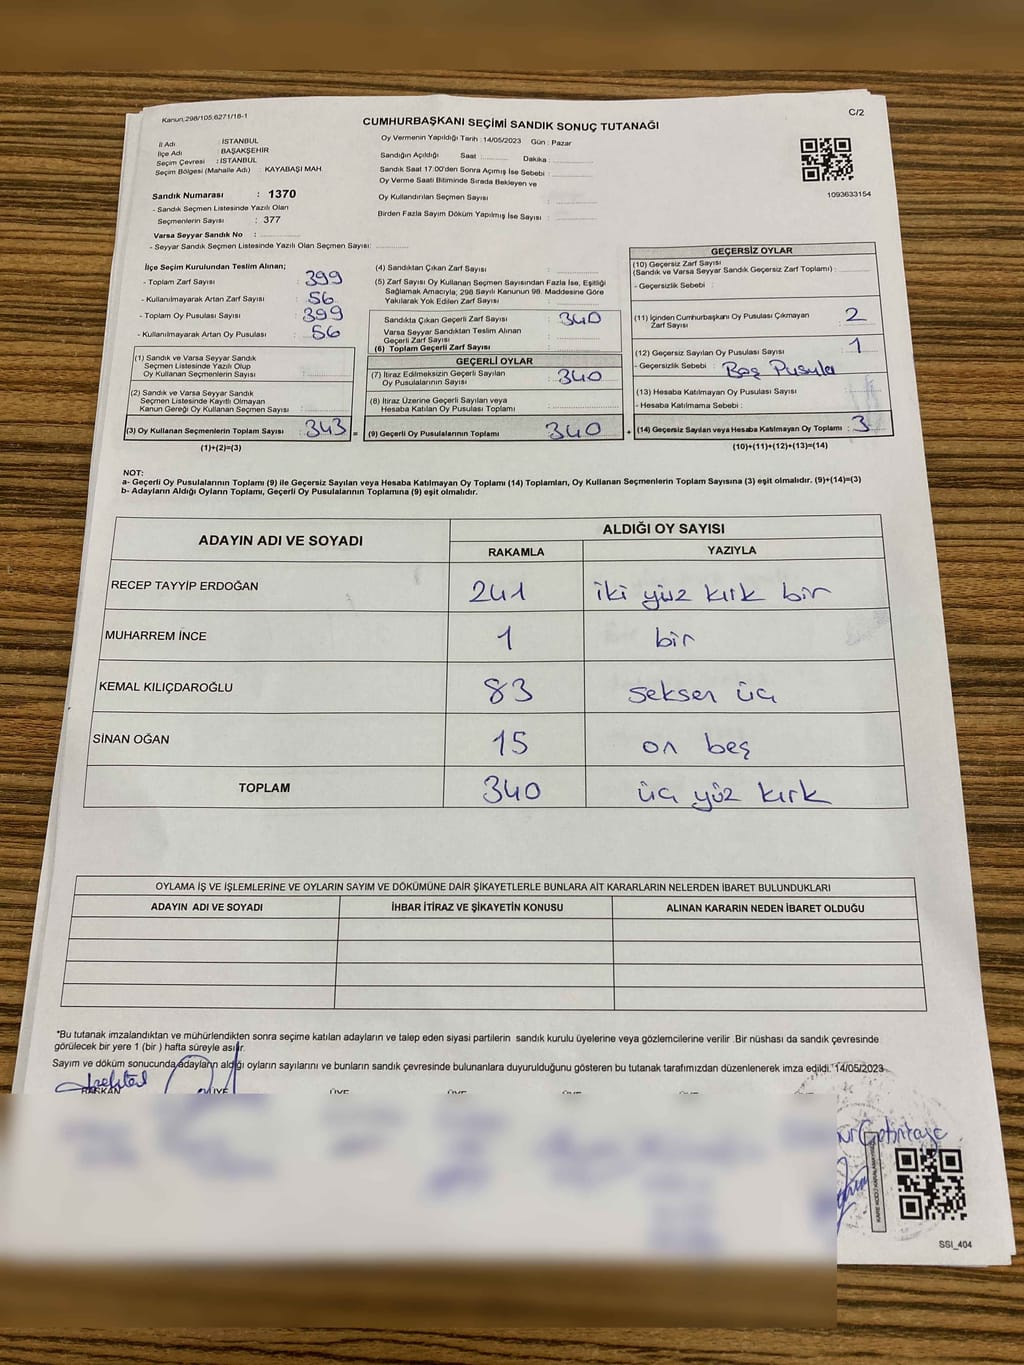 Kanun;298/105,6271/16-1
C/2
CUMHURBAŞKANI SEÇİMİ SANDIK SONUÇ TUTANAĞI
İl Adı : İSTANBUL
İlçe Adı : BAŞAKŞEHİR
Seçim Çevresi : İSTANBUL
Seçim Bölgesi (Mahalle Adı) KAYABAŞI MAH.
Sandık Numarası : 1370
- Sandık Seçmen Listesinde Yazılı Olan
Seçmenlerin Sayısı : 377
Varsa Seyyar Sandık No :
- Seyyar Sandık Seçmen Listesinde Yazılı Olan Seçmen Sayısı:
Oy Vermenin Yapıldığı Tarih : 14/05/2023 Gün : Pazar
Sandığın Açıldığı Saat Dakika :
Sandık Saat 17.00'den Sonra Açılmış İse Sebebi :
Oy Verme Saati Bitiminde Sırada Bekleyen ve
Oy Kullandırılan Seçmen Sayısı :
Birden Fazla Sayım Döküm Yapılmış İse Sayısı :
1093633154
İlçe Seçim Kurulundan Teslim Alınan;
- Toplam Zarf Sayısı : 399
- Kullanılmayarak Artan Zarf Sayısı : 56
- Toplam Oy Pusulası Sayısı : 399
- Kullanılmayarak Artan Oy Pusulası : 56
(1) Sandık ve Varsa Seyyar Sandık
Seçmen Listesinde Yazılı Olup
Oy Kullanan Seçmenlerin Sayısı :
(2) Sandık ve Varsa Seyyar Sandık
Seçmen Listesinde Kayıtlı Olmayan
Kanun Gereği Oy Kullanan Seçmen Sayısı :
(3) Oy Kullanan Seçmenlerin Toplam Sayısı : 343 =
(1)+(2)=(3)
(4) Sandıktan Çıkan Zarf Sayısı :
(5) Zarf Sayısı Oy Kullanan Seçmen Sayısından Fazla İse, Eşitliği
Sağlamak Amacıyla, 298 Sayılı Kanunun 98. Maddesine Göre
Yakılarak Yok Edilen Zarf Sayısı :
Sandıkta Çıkan Geçerli Zarf Sayısı : 340
Varsa Seyyar Sandıktan Teslim Alınan
Geçerli Zarf Sayısı :
(6) Toplam Geçerli Zarf Sayısı :
GEÇERLİ OYLAR
(7) İtiraz Edilmeksizin Geçerli Sayılan
Oy Pusulalarının Sayısı : 340
(8) İtiraz Üzerine Geçerli Sayılan veya
Hesaba Katılan Oy Pusulası Toplamı :
(9) Geçerli Oy Pusulalarının Toplamı : 340 +
GEÇERSİZ OYLAR
(10) Geçersiz Zarf Sayısı
(Sandık ve Varsa Seyyar Sandık Geçersiz Zarf Toplamı) :
- Geçersizlik Sebebi :
(11) İçinden Cumhurbaşkanı Oy Pusulası Çıkmayan
Zarf Sayısı : 2
(12) Geçersiz Sayılan Oy Pusulası Sayısı : 1
- Geçersizlik Sebebi : Boş Pusula
(13) Hesaba Katılmayan Oy Pusulası Sayısı :
- Hesaba Katılmama Sebebi :
(14) Geçersiz Sayılan veya Hesaba Katılmayan Oy Toplamı : 3
(10)+(11)+(12)+(13)=(14)
NOT:
a- Geçerli Oy Pusulalarının Toplamı (9) ile Geçersiz Sayılan veya Hesaba Katılmayan Oy Toplamı (14) Toplamları, Oy Kullanan Seçmenlerin Toplam Sayısına (3) eşit olmalıdır. (9)+(14)=(3)
b- Adayların Aldığı Oyların Toplamı, Geçerli Oy Pusulalarının Toplamına (9) eşit olmalıdır.
ADAYIN ADI VE SOYADI
ALDIĞI OY SAYISI
RAKAMLA YAZIYLA
RECEP TAYYİP ERDOĞAN 241 iki yüz kırk bir
MUHARREM İNCE 1 bir
KEMAL KILIÇDAROĞLU 83 seksen üç
SİNAN OĞAN 15 on beş
TOPLAM 340 üç yüz kırk
OYLAMA İŞ VE İŞLEMLERİNE VE OYLARIN SAYIM VE DÖKÜMÜNE DAİR ŞİKAYETLERLE BUNLARA AİT KARARLARIN NELERDEN İBARET BULUNDUKLARI
ADAYIN ADI VE SOYADI İHBAR İTİRAZ VE ŞİKAYETİN KONUSU ALINAN KARARIN NEDEN İBARET OLDUĞU
"Bu tutanak imzalandıktan ve mühürlendikten sonra seçime katılan adayların ve talep eden siyasi partilerin sandık kurulu üyelerine veya gözlemcilerine verilir .Bir nüshası da sandık çevresinde
görülecek bir yere 1 (bir ) hafta süreyle asılır.
Sayım ve döküm sonucunda adayların aldığı oyların sayılarını ve bunların sandık çevresinde bulunanlara duyurulduğunu gösteren bu tutanak tarafımızdan düzenlenerek imza edildi." 14/05/2023
BAŞKAN ÜYE ÜYE ÜYE ÜYE ÜYE
SSI_404